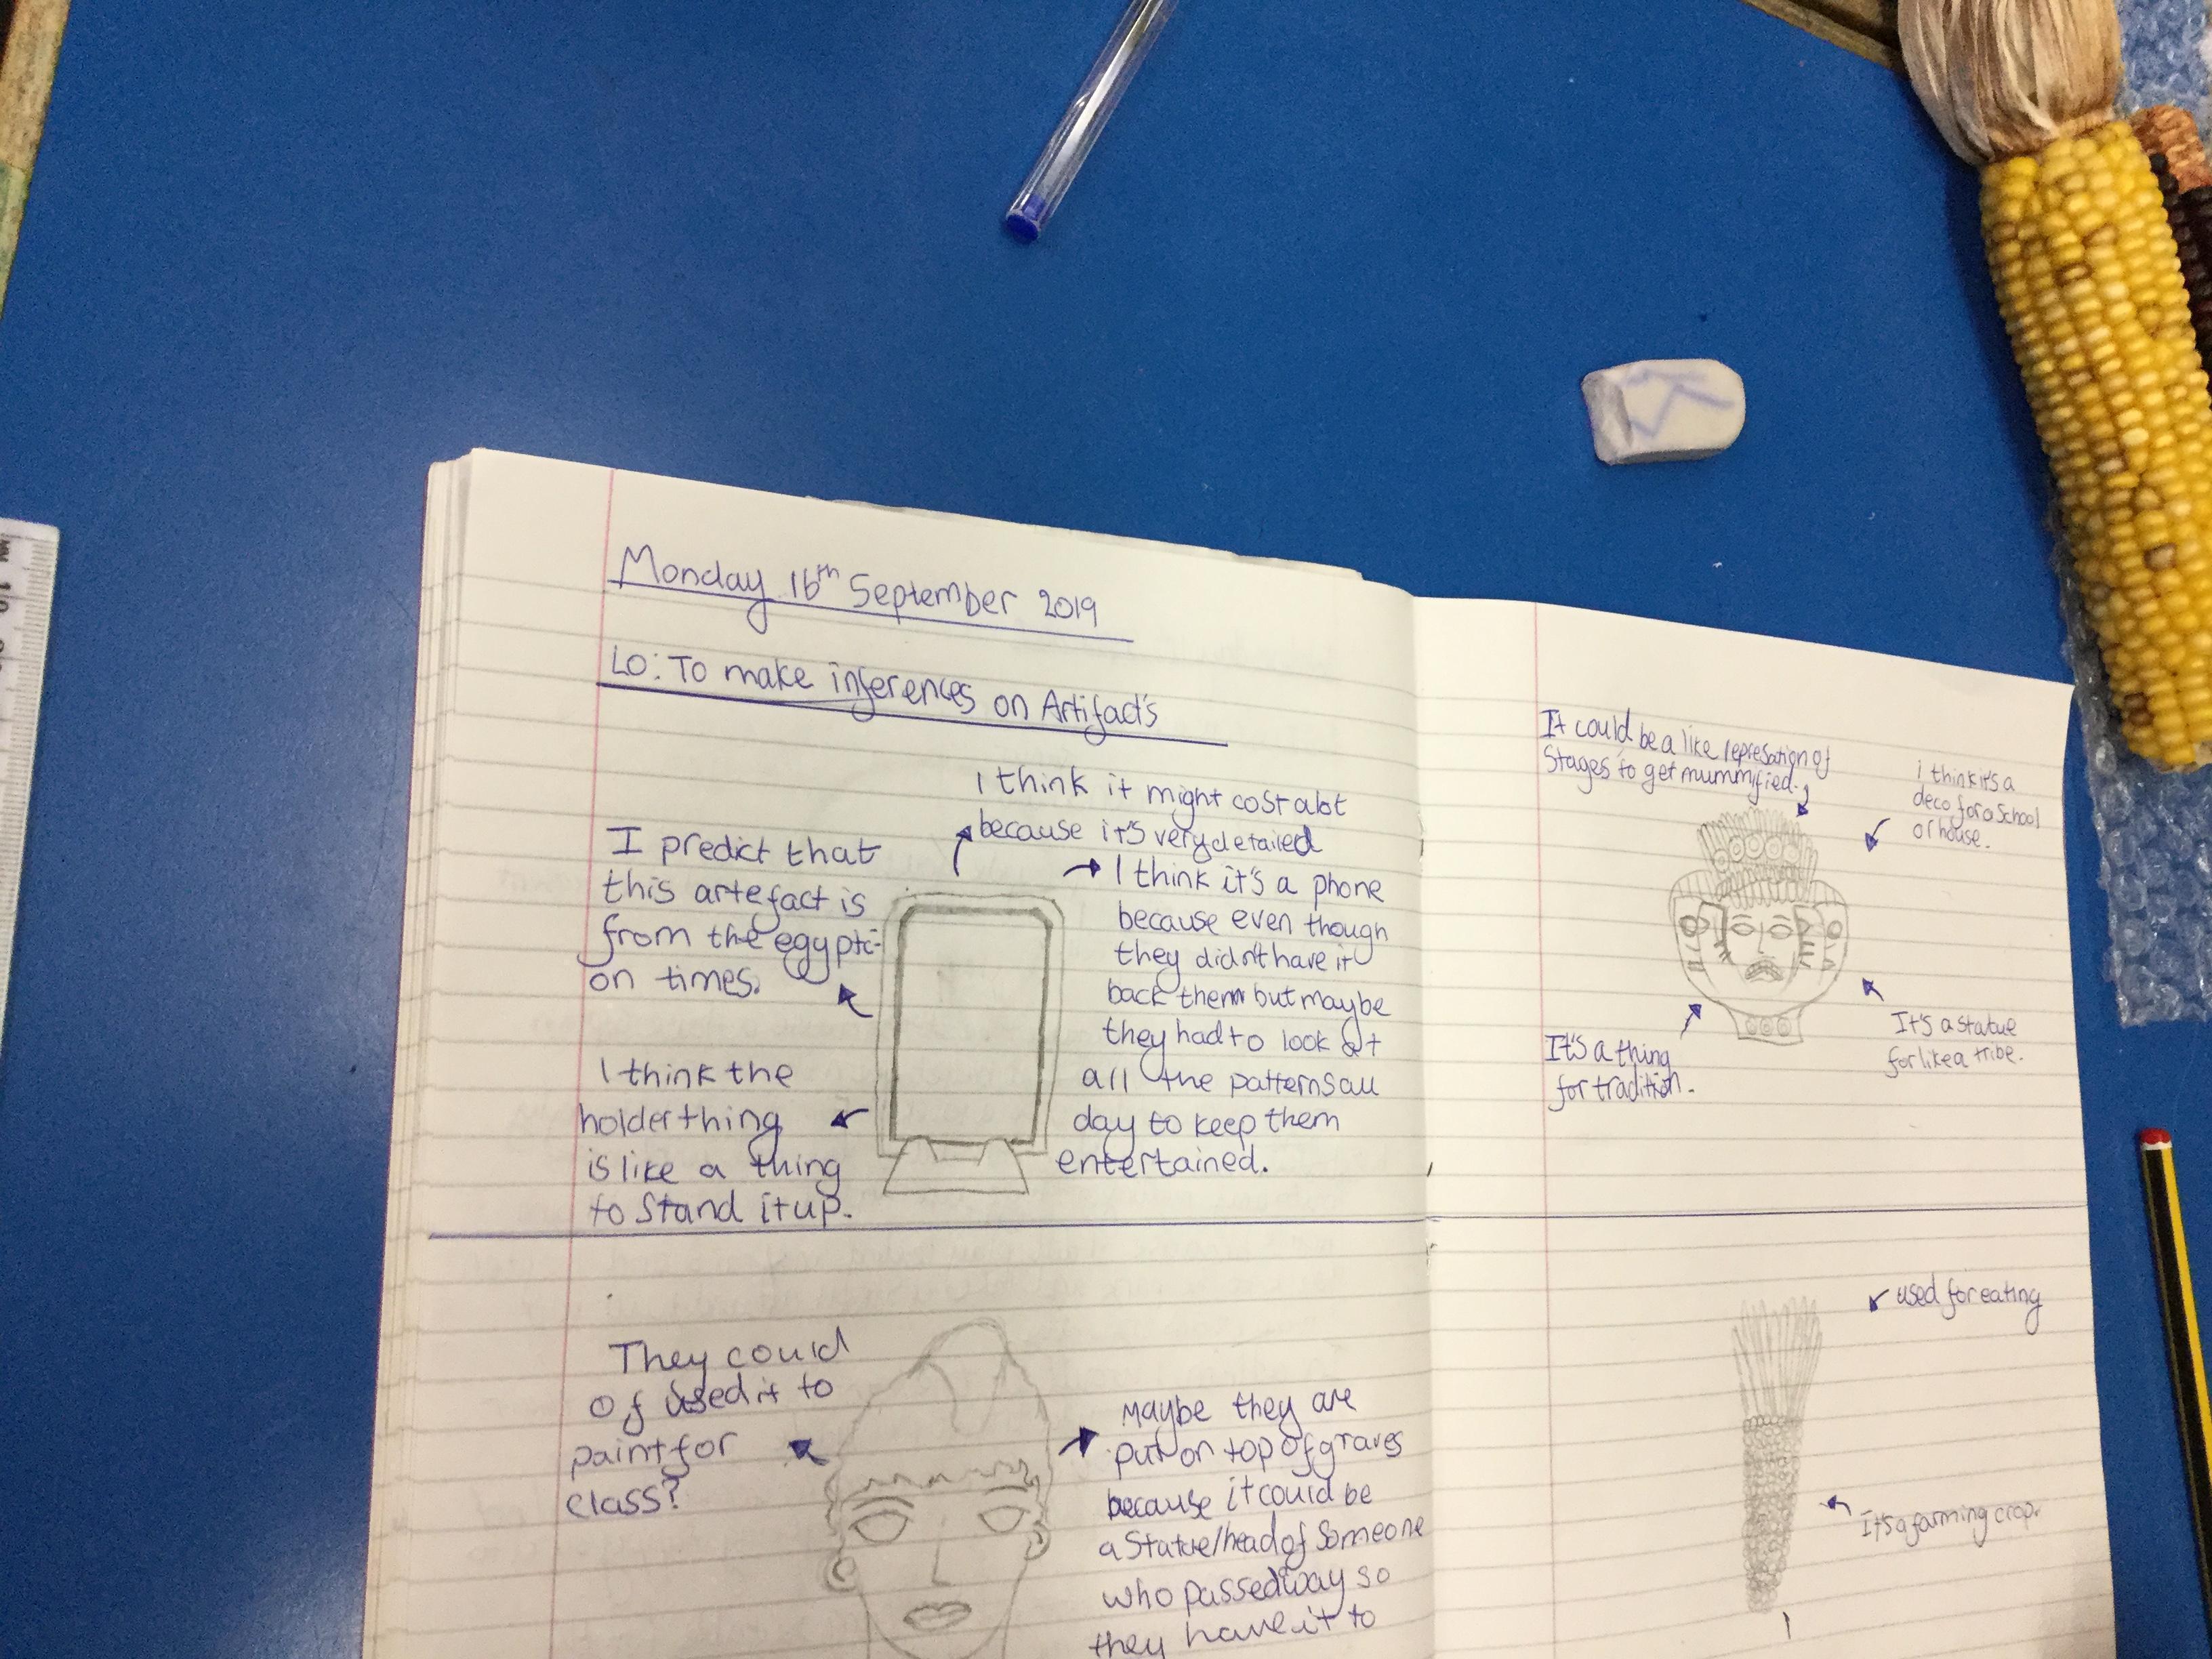 Monday 16th September 2019
LO: To make inferences on Artifact's
I think it might cost alot
because it's very detailed
I predict that
this artefact is
from the egypti-
on times.
I think it's a phone
because even though
they didn't have it
back then but maybe
they had to look at
all the patterns all
day to keep them
entertained.
I think the
holder thing
is like a thing
to stand it up.
They could
of used it to
paint for
class?
Maybe they are
put on top of graves
because it could be
a statue/head of someone
who passed away so
they have it to
It could be a like represation of
stages to get mummified.
i think it's a
deco for a school
or house.
It's a thing
for tradition.
It's a statue
for like a tribe.
used for eating
It's a farming crop.